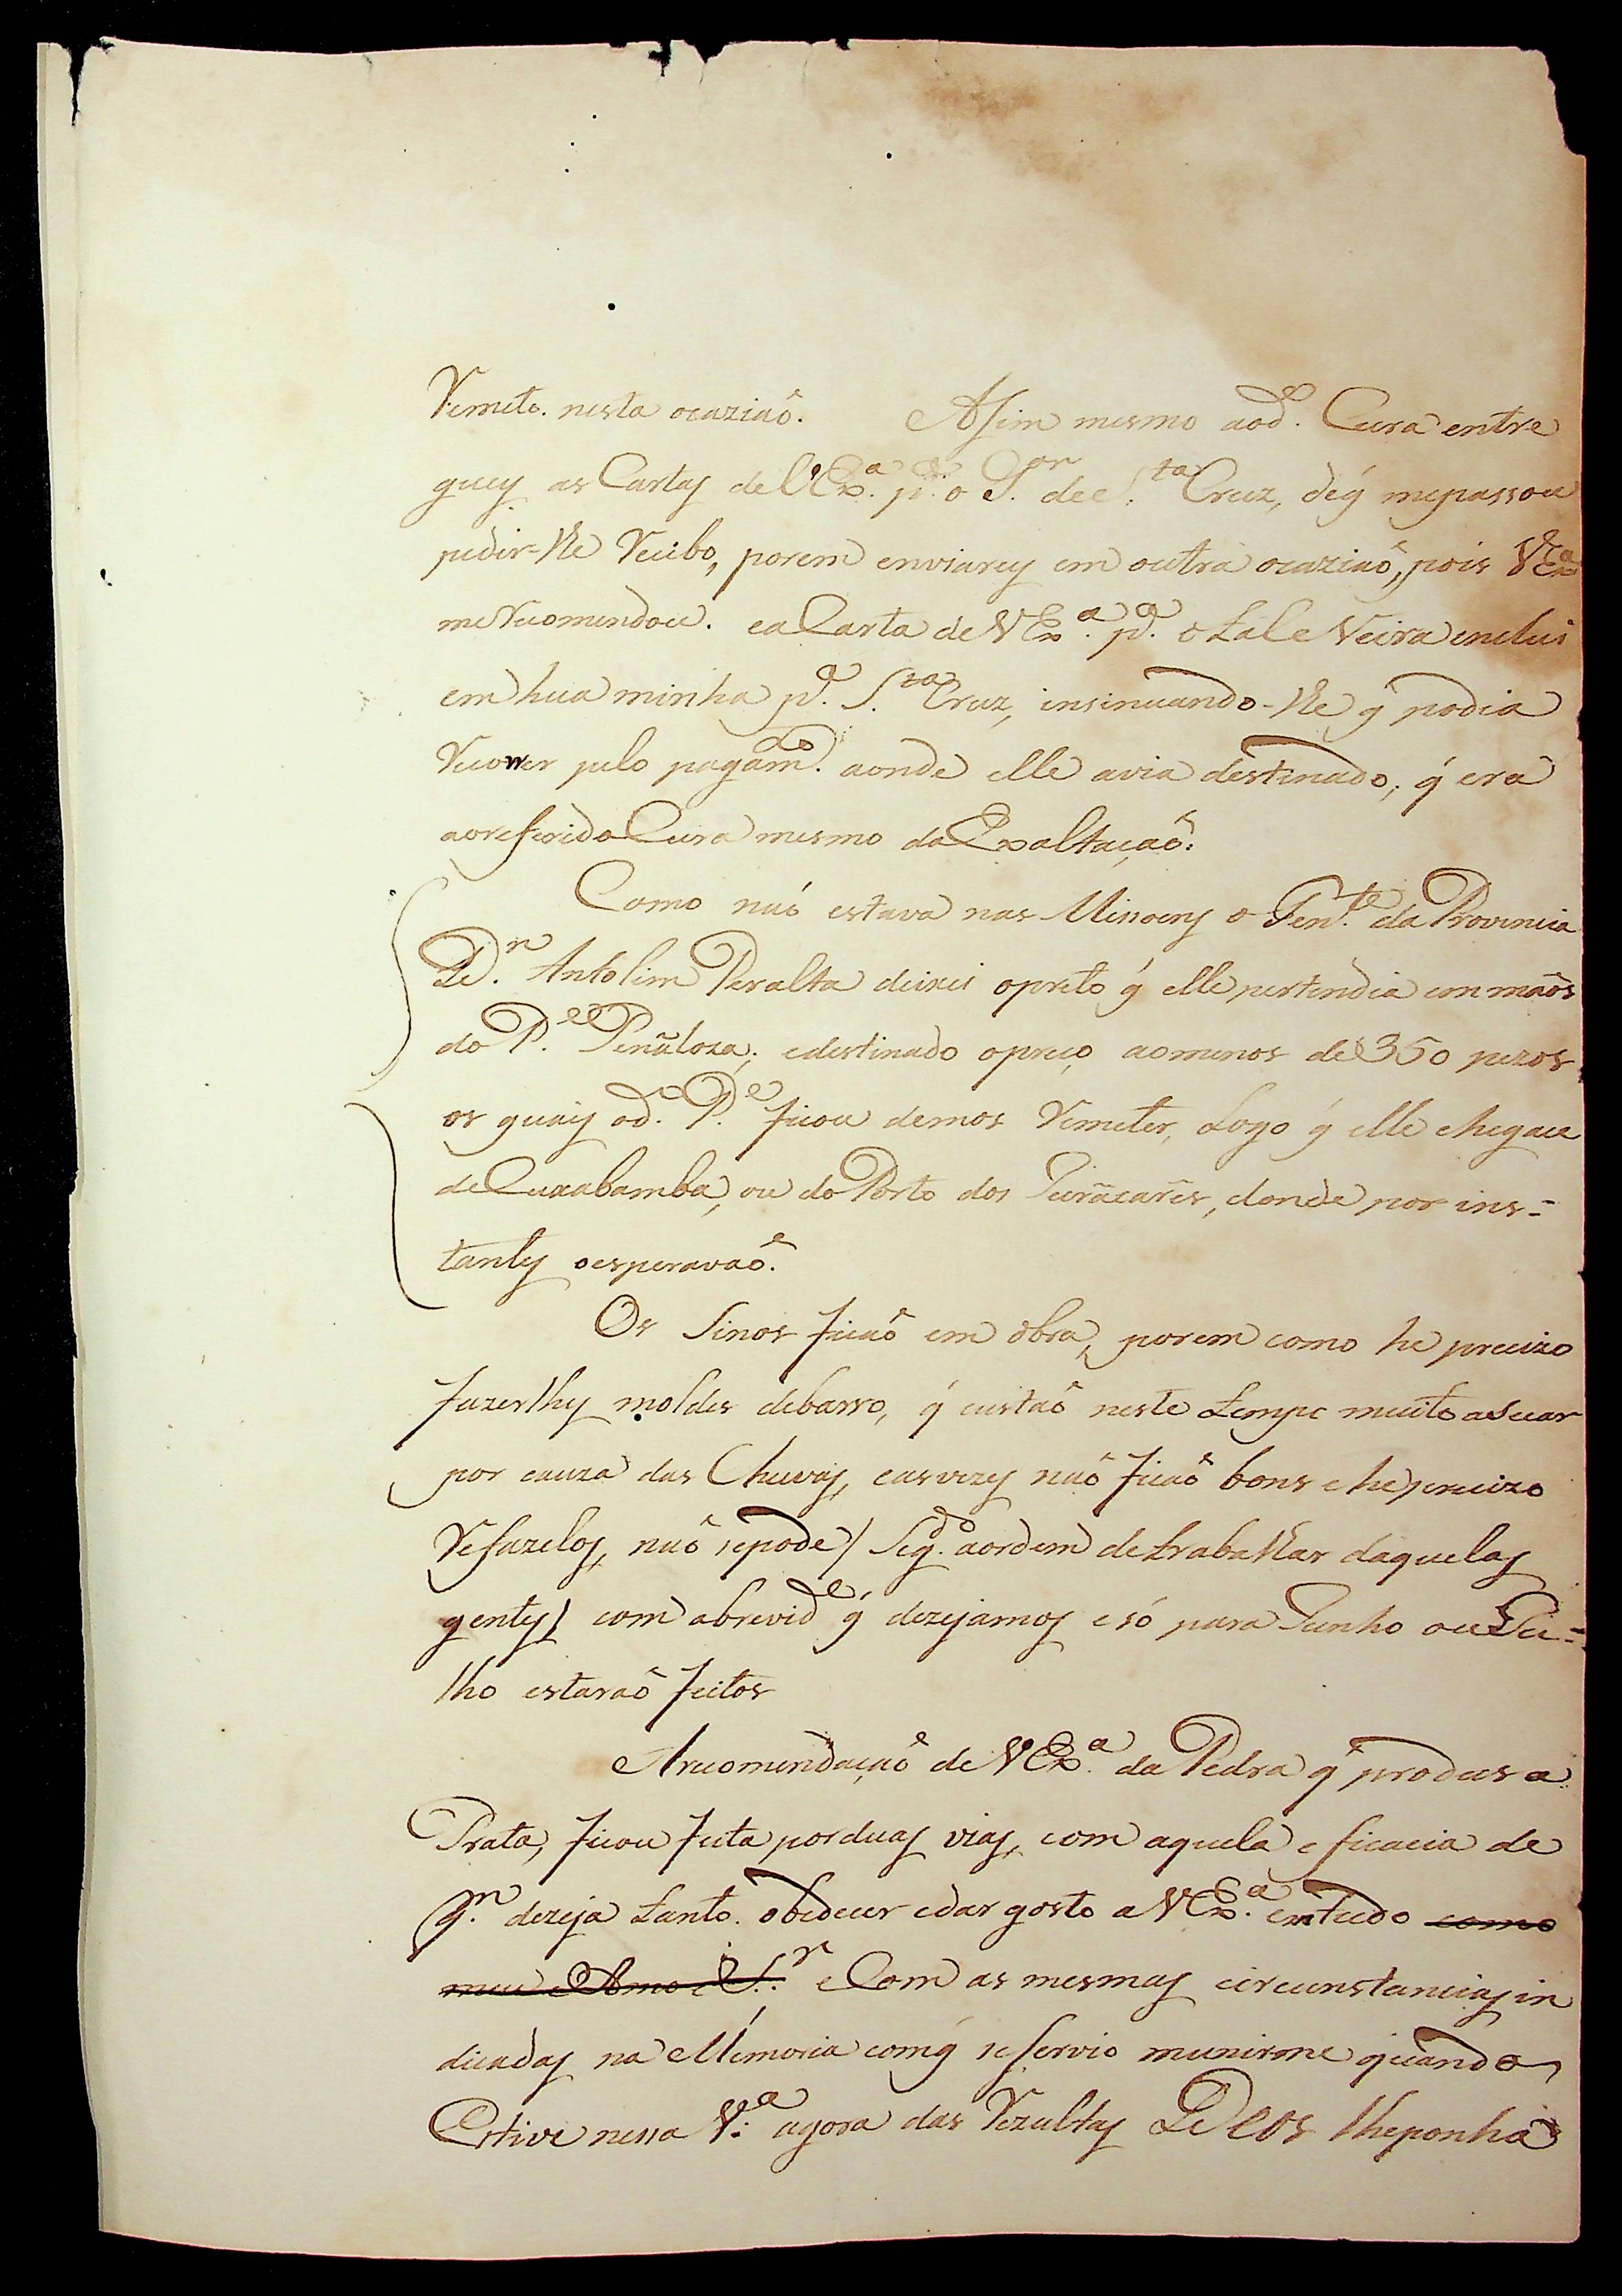 Remeto. nesta ocaziaõ. Asim mesmo aod.º Cura entre
guey as Cartas de VEx.ª p.ª o S.ºr de S.ta Cruz, deq́ mepassou
pedir-lhe Recibo, porem enviarey em outra ocaziaõ, pois VExª
meRecomendou. eaCarta de VEx.ª p.ª o Veira inclui
em hua minha p.ª S.ta Cruz, insinuando-lhe q́ podia
Recorrer pelo pagam.to aonde elle avia destinado, q́ era
aoreferido Cura mesmo da Exaltaçaõ.
Como naõ estava nas Missoens o Ten.te da Provincia
D.n Antolim Peralta deixei opreto q́ elle pertendia em maõs
do P.e Peñaloza; edestinado opreço aomenos de 350 pezos
os quais od.º P.e ficou demos Remeter, Logo q́ elle chegace
deCuxabamba, ou do Porto dos Jurãcarẽs, donde por ins=
tantes oesperavaõ.
Os Sinos ficaõ em obra, porem como he precizo
fazerlhes moldes debarro, q́ custaõ neste tempo muito aSecar
por cauza das Chuvas, easvezes naõ ficaõ bons ehe precizo
Refazelos, naõ sepode / Seg.do aordem detrabalhar daquelas
gentes / com abrevid.e q́ dezejamos esó para Junho ou Ju=
lho estaraõ feitos
Arecomendaçaõ de VEx.ª da Pedra q́ produs a
Prata, ficou feita porduas vias, com aquela eficacia de
q.m dezeja tanto. obedecer edar gosto a VEx.ª emtudo como
meu Amo e S.r eCom as mesmas circunstancias in
dicadas na Memoria comq́ seservio munirme quando
Estive nessa V.ª agora das Rezultas Deos lheponha